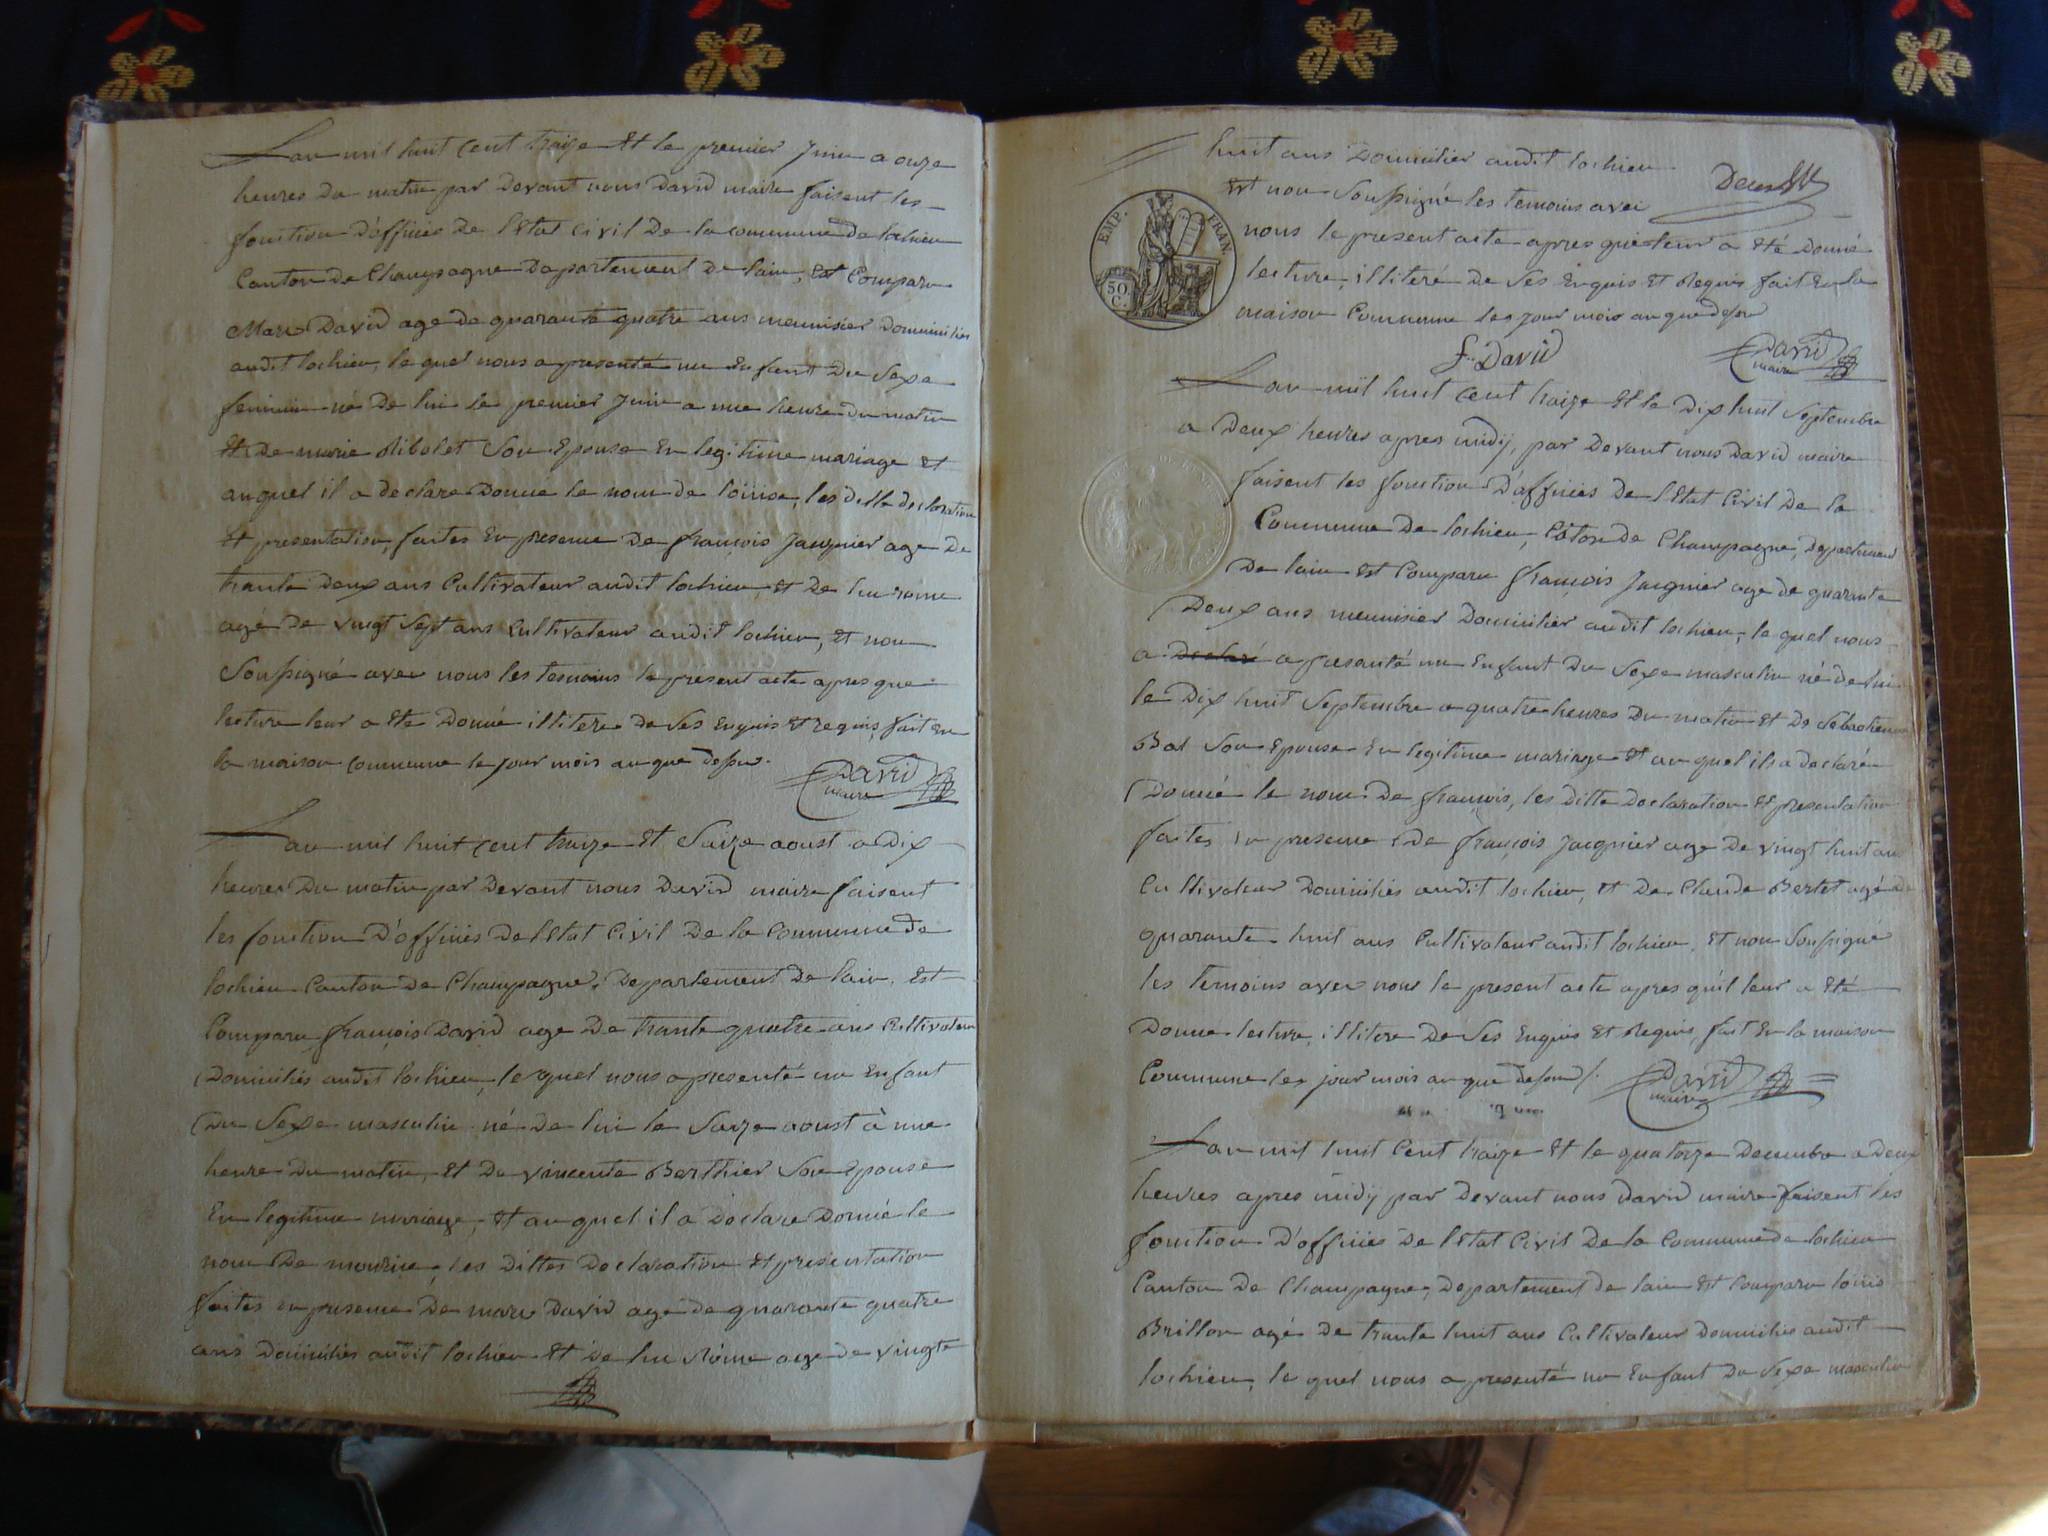 L'an mil huit cent traize Et le premier Juin a onze
heures du matin par devant nous David maire faisent les
fonction d'officiés de l'Etat civil De la commune de lochieu
Canton De Champagne Departement De lain, Est Comparu
Marc David age de quarante quatre ans meunisier Domicilies
audit lochieu, le quel nous a presenté un Enfant Du Sexe
feminin né De lui le premier Juin a une heure du matin
Et De marie Ribolet Son Epouse En legitime mariage Et
auquel il a declare Donné le nom de loüise, les ditte declaration
Et presentation, faites En presence De françois Jacquier age De
trante Deux ans Cultivateur audit lochieu, Et De luc rome
agé de vingt Sept ans Cultivateur audit lochieu, Et non
Soussigné avec nous les tesmoins le présent acte apres que
lecture leur a Ete Donné illitere de Ses Enquis Et requis, fait En
la maison commune le jour mois an que dessu.
David
maire
L'an mil huit cent traize Et Saize aoust a Dix
heures Du matin par Devant nous David maire faisent
les fonction D'officiés De l'Etat Civil De la Commune De
lochieu Canton De Champagne, Departement De lain, Est
Comparu françois David age De trante quatre ans Cultivateur
Domiciliés audit lochieu, le quel nous a presenté un Enfant
Du Sexe masculin né De lui le Saize aoust à une
heure Du matin, Et De vincente Berthier Son Epouse
En legitime mariage, Et au quel il a Declare Donné le
nom De mourice, les Dittes Declaration Et presentation
faites en presence De marc David agé de quarante quatre
ans Domiciliés audit lochieu Et De luc Rome age de vingt
huit ans Domicilier audit lochieu
Et non Soussigné les temoins avec
nous le present acte apres que leur a Eté Donné
lecture, illiteré de Ses Enquis Et Requis fait En la
maison Commune les jour mois an que dessu
EMP. FRAN.
50
C.
f. David
David
maire
L'an mil huit cent traize Et le Dix huit Septembre
a Deux heures apres midy, par Devant nous David maire
faisent les fonction D'officiés De l'Etat Civil De la
Commune De lochieu, Cãton de Champagne, Departement
De lain Est Comparu françois Jacquier age de quarante
Deux ans meunisier Domicilier audit lochieu, le quel nous
a Declaré a presanté un Enfant Du Sexe masculin né de lui
le Dix huit Septembre a quatre heures Du matin Et De
Bal Son Epouse En legitime mariage Et au quel il a declaré
Donné le nom De françois, les Ditte Declaration Et presentation
faites En presence De françois Jacquier age De vingt huit an
Cultivateur Domiciliés audit lochieu, Et De Claude Bertet agé de
quarante huit ans Cultivateur audit lochieu, Et non Soussigné
les temoins avec nous le present acte apres qu'il leur a Eté
Donne lecture, illitere De Ses Enquis Et Requis, fait En la maison
Commune les jour mois an que dessus
David
maire
L'an mil huit Cent traize Et le quatorze Decembre a Deux
heures apres midy par Devant nous David maire faisent les
fonction D'officiés De l'Etat Civil De la Commune De lochieu
Canton De Champagne, Departement de lain Est Comparu loüis
Brillon agé De trante huit ans Cultivateur Domiciliés audit
lochieu, le quel nous a presenté un Enfant Du Sexe masculin